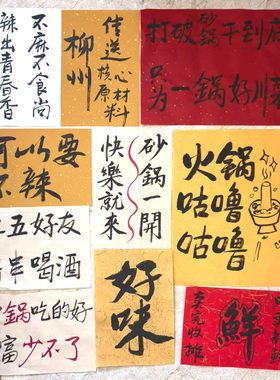 不麻不食尚
辣出青春香
佳送
核心
原材料
柳州
打破砂鍋干到底
只为一鍋好川菜
可以要
不辣
砂鍋一開
快樂就來
火鍋
咕嚕
咕嚕
五好友
串喝酒
好味
鍋吃的好
富少不了
鮮
賣完收攤